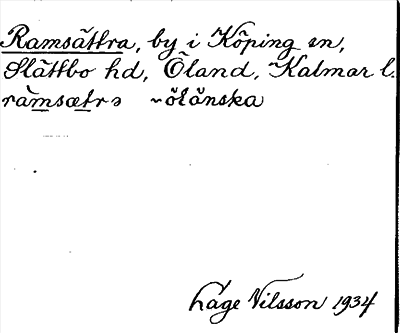 Ramsättra, by i Köping sn,
Slättbo hd, Öland, Kalmar l.
ràmsætrə ~ölånska
Låge Nilsson 1934